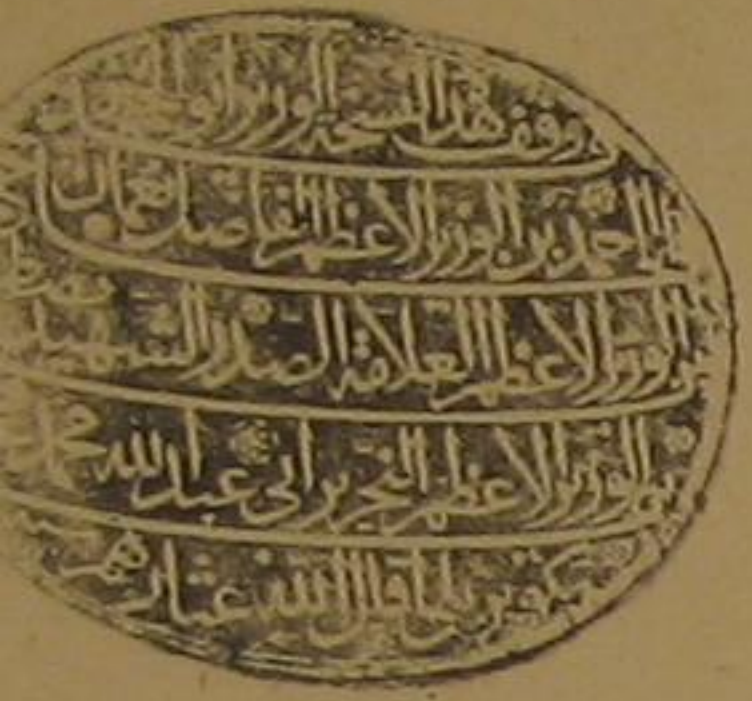 وقف هذا النسخة الوزير ابو
احمد بن الوزير الاعظم الفاضل نعمان
بن الوزير الاعظم العلامة الصدر الشهيد مصطفى
بن الوزير الاعظم النحرير ابى عبد الله محمد
كوپريلى اقال الله عثارهم